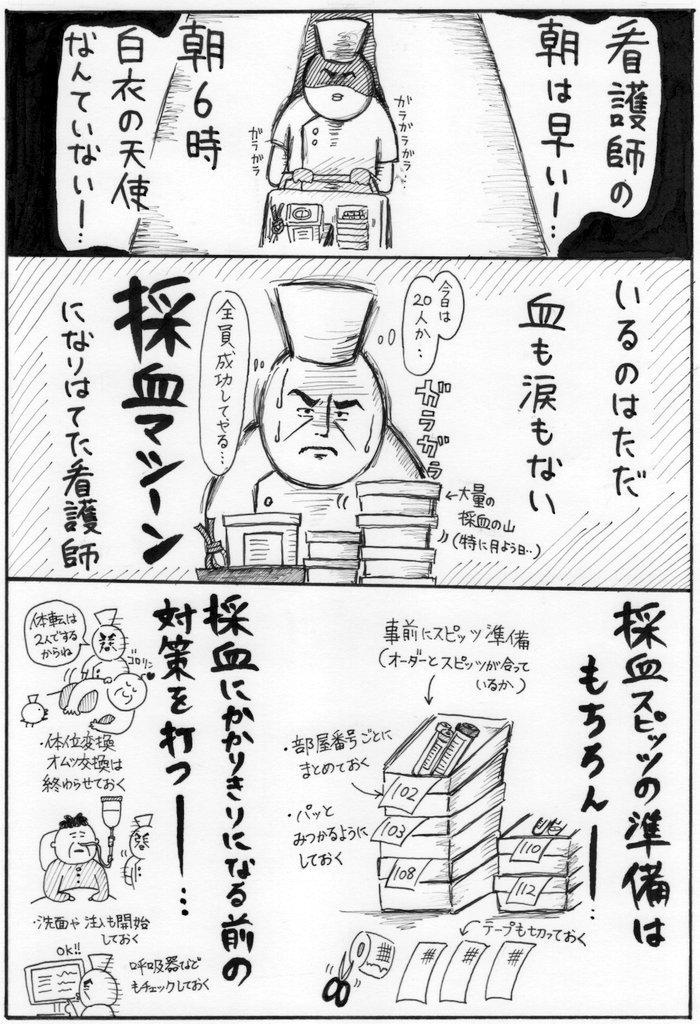 看護師の
朝は早い―…
ガラガラガラ…
ガラガラ
朝6時
白衣の天使
なんていない―…
いるのはただ
血も涙もない
今日は
20人か…
ガラガラ
←大量の
採血の山
(特に月よう日…)
全員成功してやる…
採血マシーン
になりはてた看護師
採血スピッツの準備は
もちろん―…
事前にスピッツ準備
(オーダーとスピッツが合って
いるか)
・部屋番号ごとに
まとめておく
・パッと
みつかるように
しておく
102
103
108
110
112
テープも切っておく
採血にかかりきりになる前の
対策を打つ―…
体転は
2人でする
からね
ゴロリン
・体位変換
オムツ交換は
終わらせておく
・洗面や注入も開始
しておく
OK!!
呼吸器など
もチェックしておく